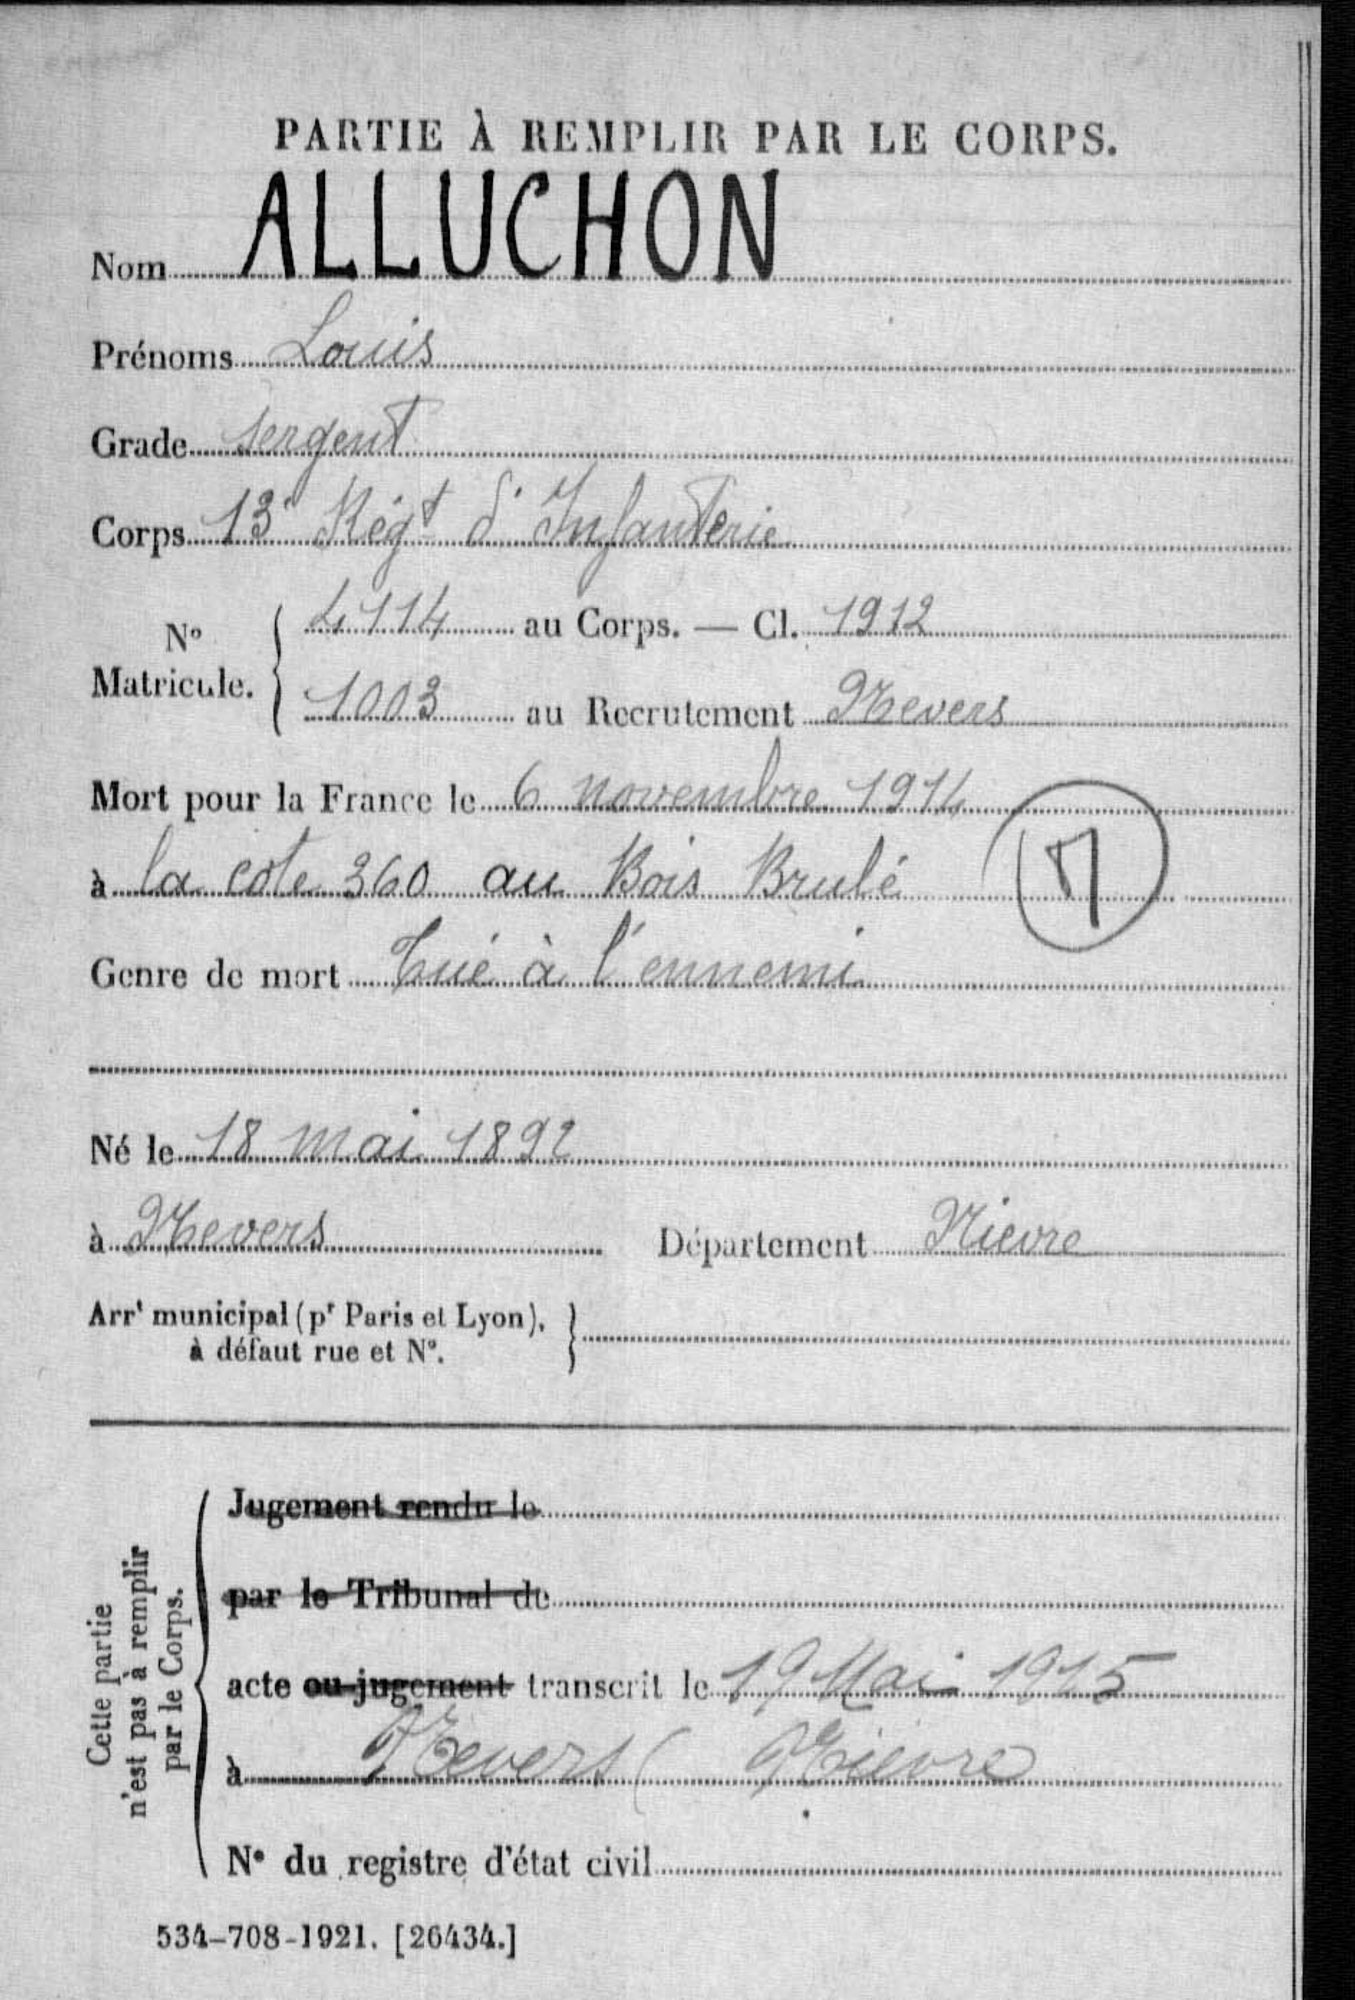 PARTIE À REMPLIR PAR LE CORPS.
Nom ALLUCHON
Prénoms Louis
Grade Sergent
Corps 13e Régt d'Infanterie
No Matricule. { 4114 au Corps. — Cl. 1912
1003 au Recrutement Nevers
Mort pour la France le 6 novembre 1914
à la cote 360 au Bois Brulé
Genre de mort Tué à l'ennemi
Né le 18 mai 1892
à Nevers Département Nievre
Arrt municipal (pr Paris et Lyon), }
à défaut rue et No.
Cette partie
n'est pas à remplir
par le Corps.
Jugement rendu le
par le Tribunal de
acte ou jugement transcrit le 19 Mai 1915
à Nevers ( Nièvre
No du registre d'état civil
534-708-1921. [26434.]